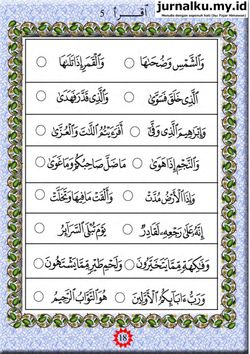 jurnalku.my.id
Metode dengan sepenuh hati Dwi Fajar Mahasanah
اقرأ 5
وَالشَّمْسِ وَضُحَىٰهَا ○ وَالْقَمَرِ إِذَا تَلَىٰهَا ○
الَّذِي خَلَقَ فَسَوَّىٰ ○ وَالَّذِي قَدَّرَ فَهَدَىٰ ○
وَإِبْرَاهِيمَ الَّذِي وَفَّىٰ ○ أَفَرَءَيْتُمُ اللَّٰتَ وَالْعُزَّىٰ ○
وَالنَّجْمِ إِذَا هَوَىٰ ○ مَا ضَلَّ صَاحِبُكُمْ وَمَا غَوَىٰ ○
وَإِذَا الْأَرْضُ مُدَّتْ ○ وَأَلْقَتْ مَا فِيهَا وَتَخَلَّتْ ○
إِنَّهُ عَلَىٰ رَجْعِهِ لَقَادِرٌ ○ يَوْمَ تُبْلَى السَّرَائِرُ ○
وَفَاكِهَةٍ مِّمَّا يَتَخَيَّرُونَ ○ وَلَحْمِ طَيْرٍ مِّمَّا يَشْتَهُونَ ○
وَرَبُّ ءَابَائِكُمُ الْأَوَّلِينَ ○ هُوَ التَّوَّابُ الرَّحِيمُ ○
18